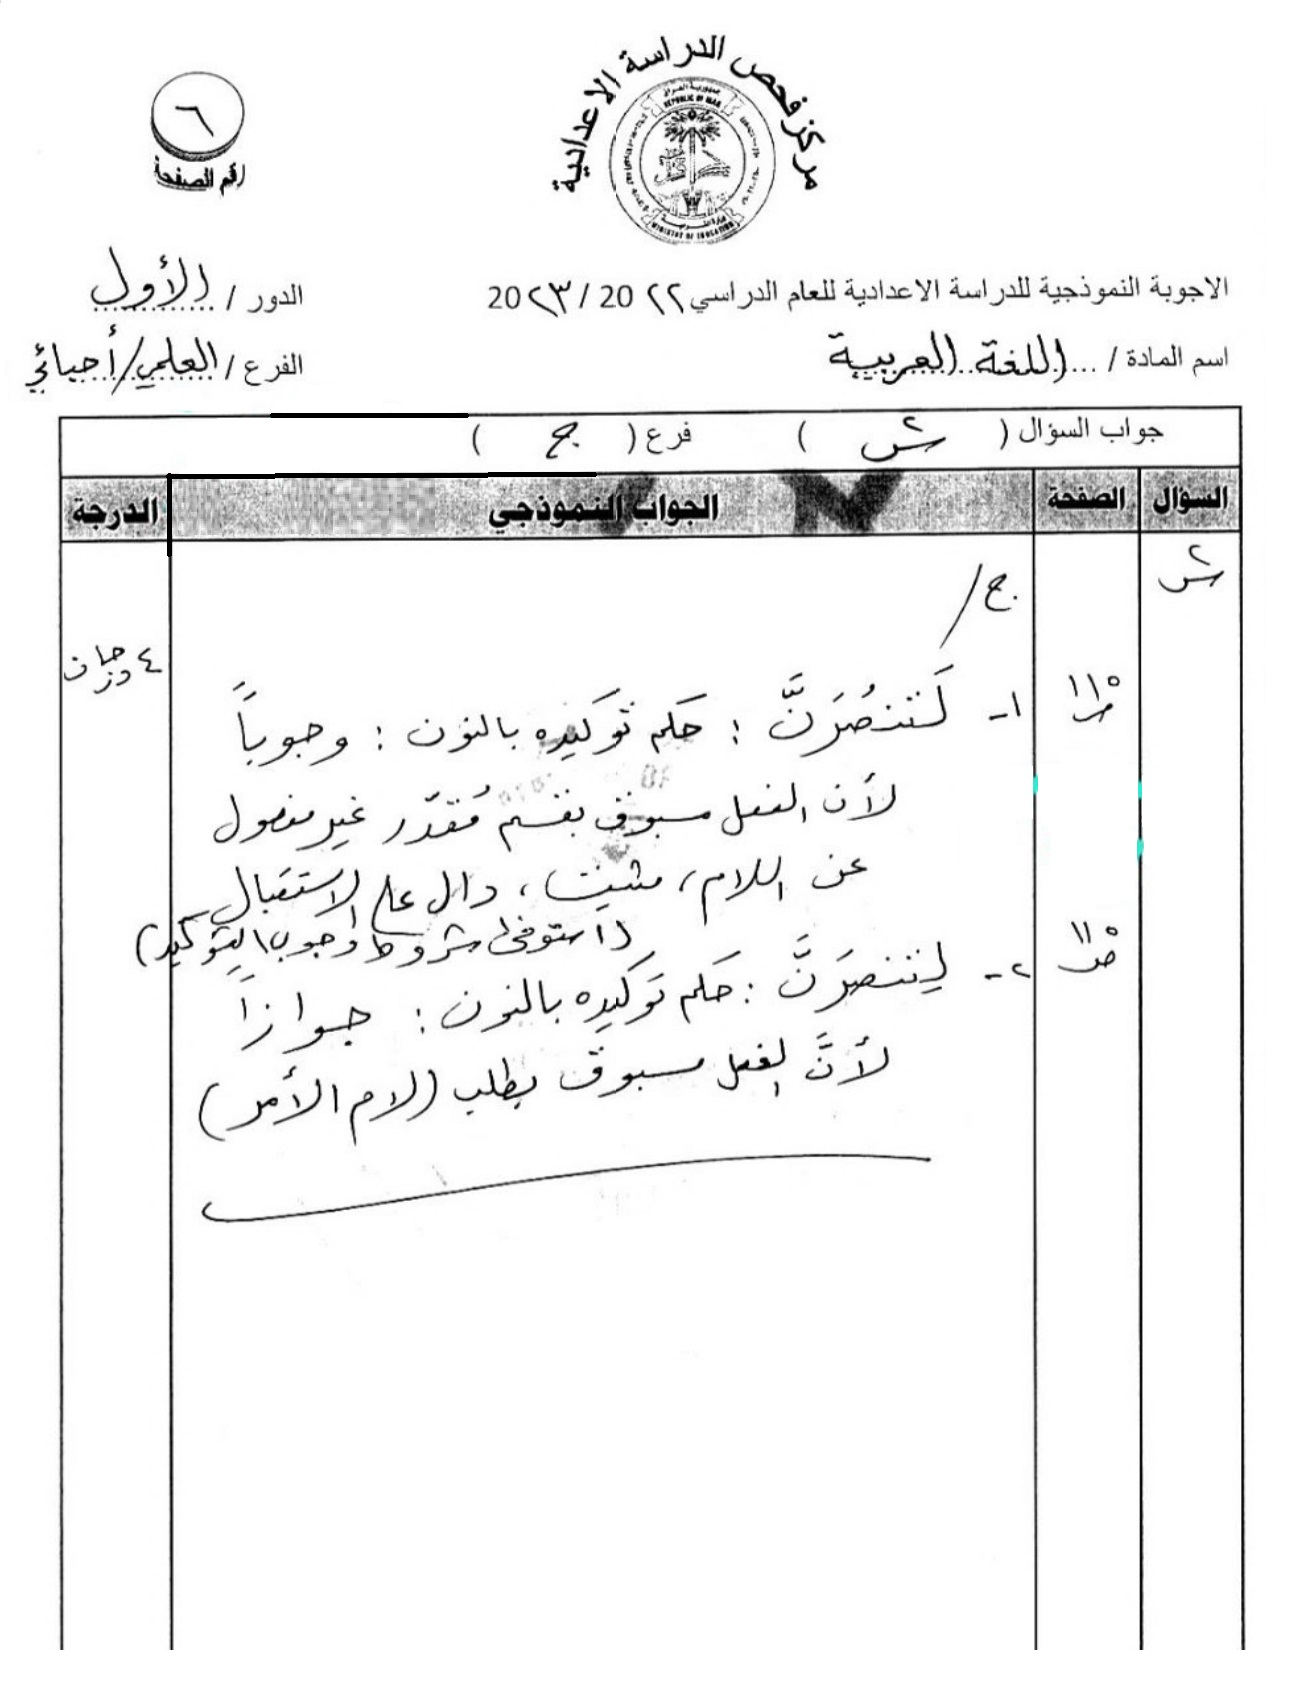 مركز فحص الدراسة الاعدادية
جمهورية العراق
REPUBLIC OF IRAQ
وزارة التربية
MINISTRY OF EDUCATION
٦
رقم الصفحة
الاجوبة النموذجية للدراسة الاعدادية للعام الدراسي 20٢٢ / 20٢٣
الدور / الأول
اسم المادة / اللغة العربية
الفرع / العلمي/أحيائي
جواب السؤال ( س٢ ) فرع ( ج )
السؤال الصفحة الجواب النموذجي الدرجة
س٢
ج/
٤ درجات
ص١١٥
١- لَتنصُرَنَّ : حكم توكيده بالنون : وجوباً
لأن الفعل مسبوق بقسم مُقدّر غير مفصول
عن اللام، مثبت، دال على الاستقبال
(استوفى شروط وجوب التوكيد)
ص١١٥
٢- لِتنصرَنَّ : حكم توكيده بالنون : جوازاً
لأنَّ الفعل مسبوق بطلب (لام الأمر)